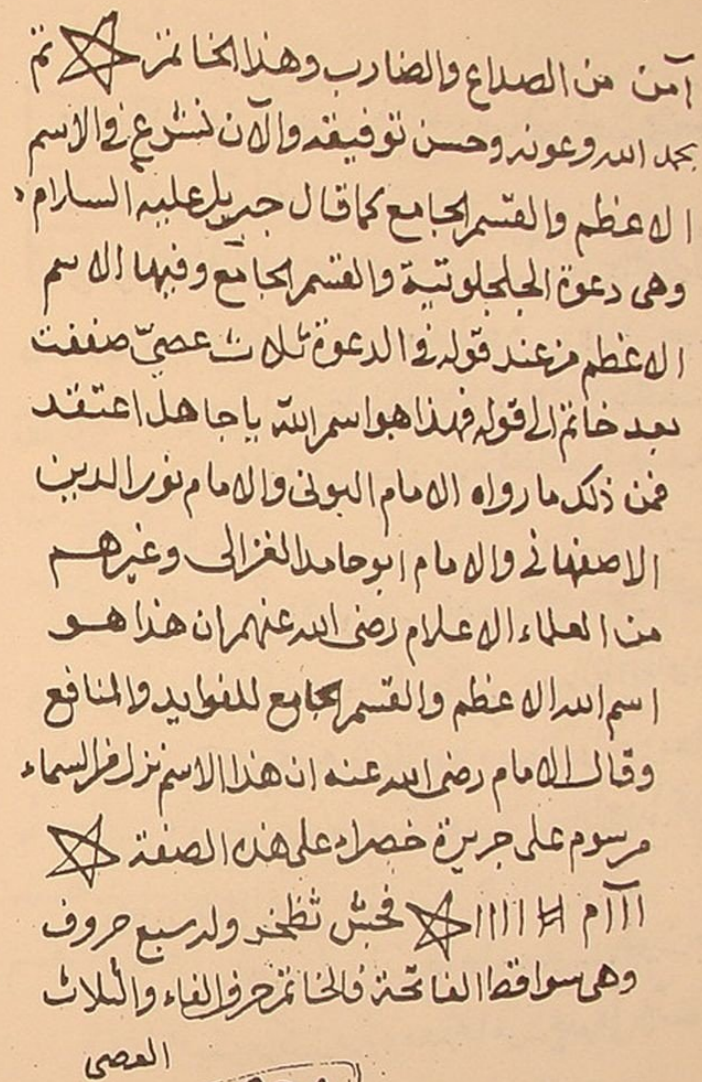 آمن من الصداع والضارب وهذا الخاتم ☆ تم
بحمد الله وعونه وحسن توفيقه والآن نشرع في الاسم
الاعظم والقسم الجامع كما قال جبريل عليه السلام
وهى دعوة الجلجلوتية والقسم الجامع وفيها الاسم
الاعظم من عند قوله في الدعوة ثلاث عصيّ صففت
بعد خاتم الى قوله فهذا هو اسم الله يا جاهل اعتقد
فمن ذلك ما رواه الامام البونى والامام نور الدين
الاصفهانى والامام ابو حامد الغزالى وغيرهم
من العلماء الاعلام رضى الله عنهم ان هذا هو
اسم الله الاعظم والقسم الجامع للفوايد والمنافع
وقال الامام رضى الله عنه ان هذا الاسم نزل من السماء
مرسوم على جريدة خضراء على هذه الصفة ☆
ااام # ااااا ☆ فجش ثظخز وله سبع حروف
وهى سواقط الفاتحة فالخاتم حرف الفاء والثلاث
العصى